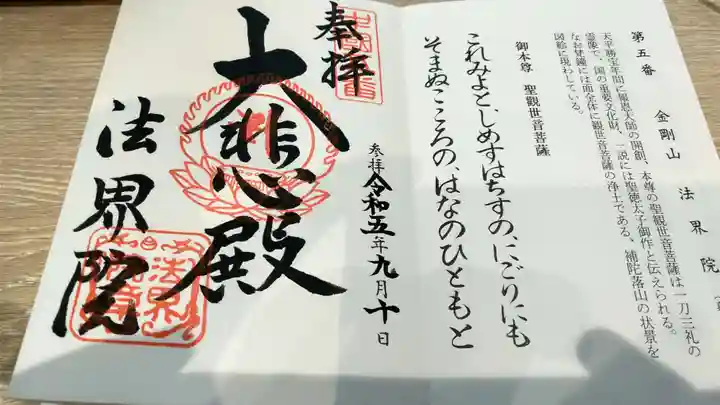 第五番 金剛山 法界院
天平勝宝年間に報恩大師の開創、本尊の聖観世音菩薩は一刀三礼の
霊像で、国の重要文化財、一説には聖徳太子御作と伝えられる。
なお梵鐘には面全体に観世音菩薩の浄土である、補陀落山の状景を
図絵に現わしている。
御本尊 聖觀世音菩薩
これみよと、しめすはちすの、にごりにも
そまぬこころの、はなのひともと
奉拝
大悲殿
法界院
参拝 令和五年九月十日